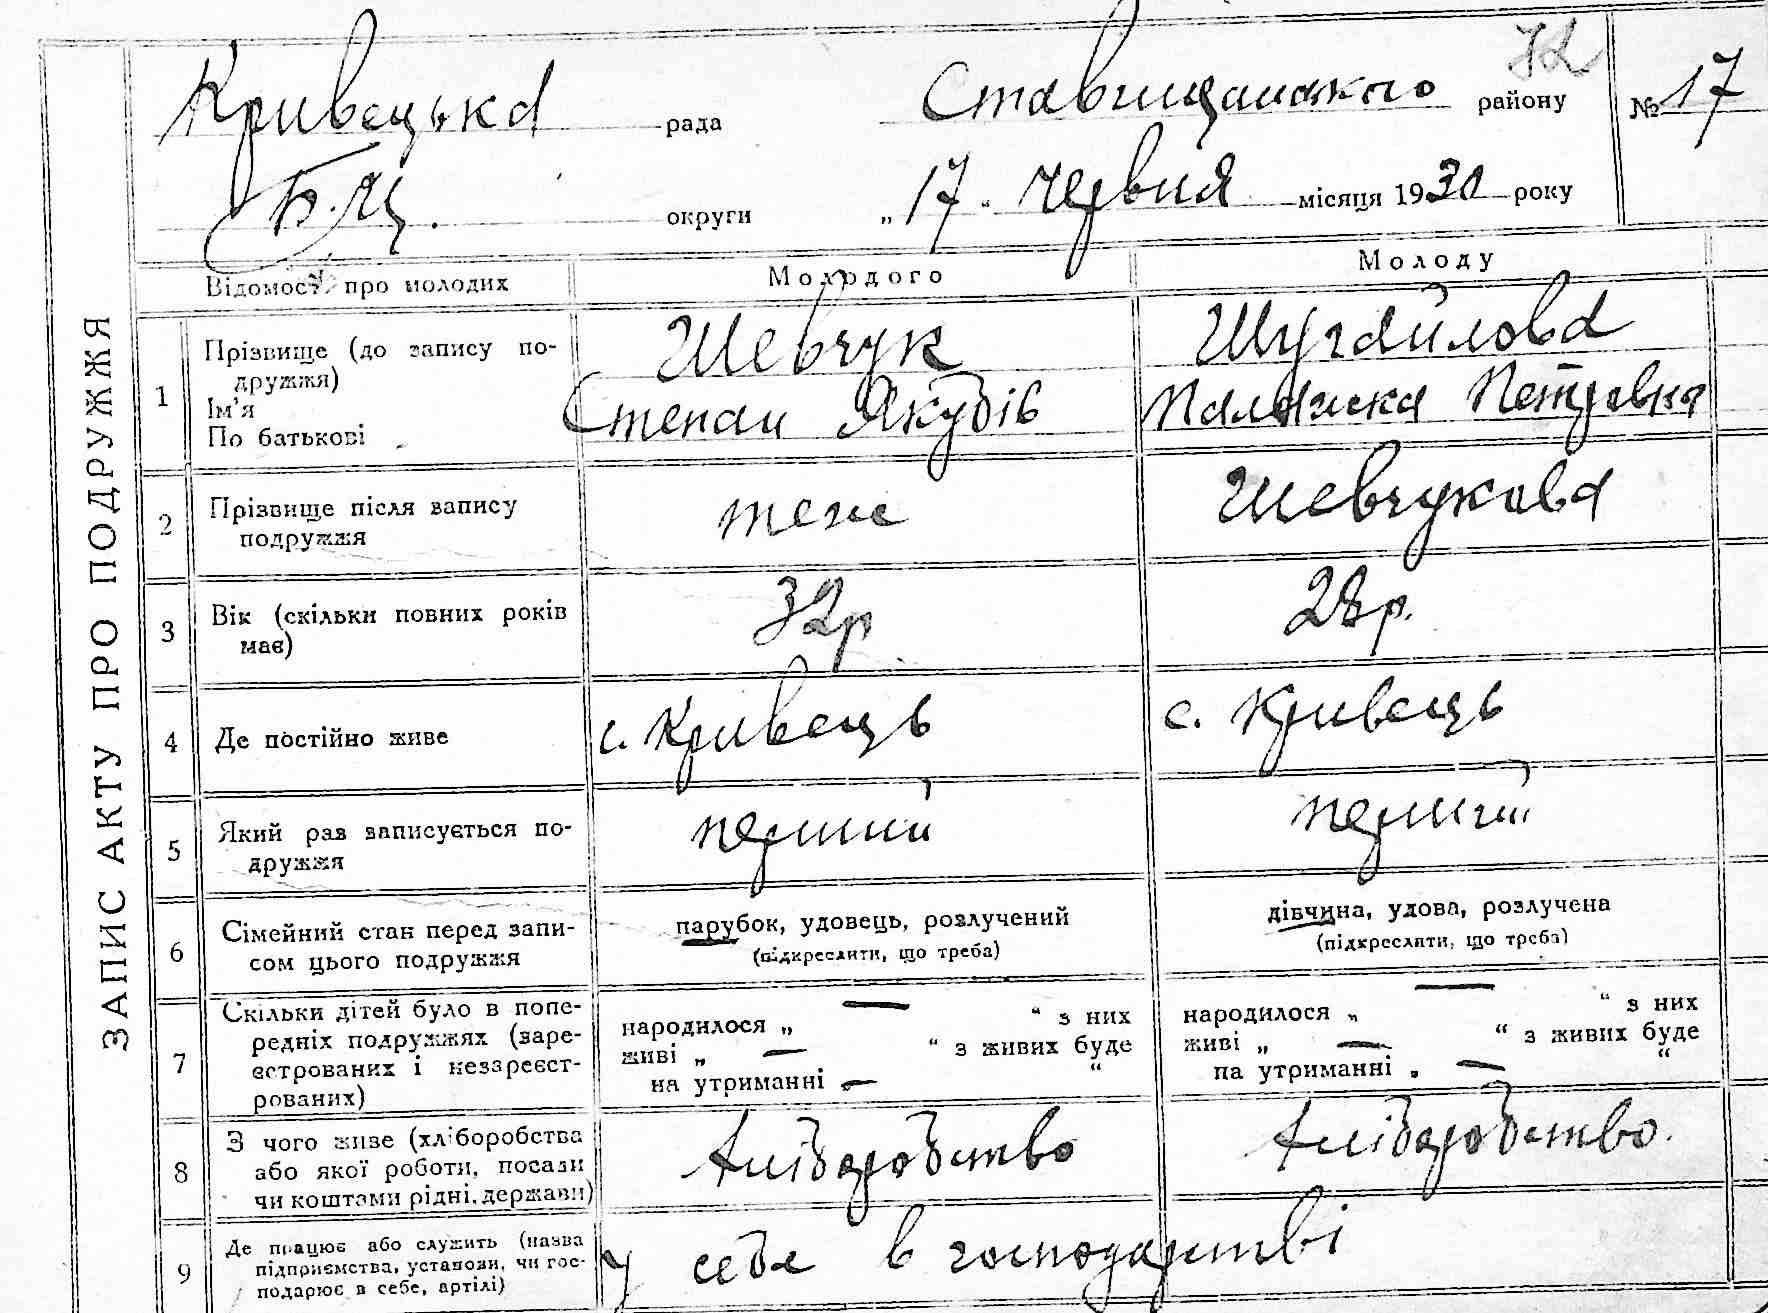 72
Кривецька рада Ставищанського району № 17
Б.Ц. округи „ 17 “ червня місяця 1930 року
ЗАПИС АКТУ ПРО ПОДРУЖЖЯ
Відомості про молодих Молодого Молоду
1 Прізвище (до запису по-
дружжя)
Ім’я
По батькові
Шевчук
Степан Якубів
Шугайлова
Палажка Петровна
2 Прізвище після запису
подружжя
теж
Шевчукова
3 Вік (скільки повних років
має)
32р
28р.
4 Де постійно живе
с. Кривець
с. Кривець
5 Який раз записується по-
дружжя
перший
перший
6 Сімейний стан перед запи-
сом цього подружжя
парубок, удовець, розлучений
(підкреслити, що треба)
дівчина, удова, розлучена
(підкреслити, що треба)
7 Скільки дітей було в попе-
редніх подружжях (заре-
єстрованих і незареєст-
рованих)
народилося „ — “ з них
живі „ — “ з живих буде
на утриманні „ — “
народилося „ — “ з них
живі „ — “ з живих буде
на утриманні „ — “
8 З чого живе (хліборобства
або якої роботи, посади
чи коштами рідні, держави)
хліборобство
хліборобство.
9 Де працює або служить (назва
підприємства, установи, чи гос-
подарює в себе, артілі)
у себе в господарстві